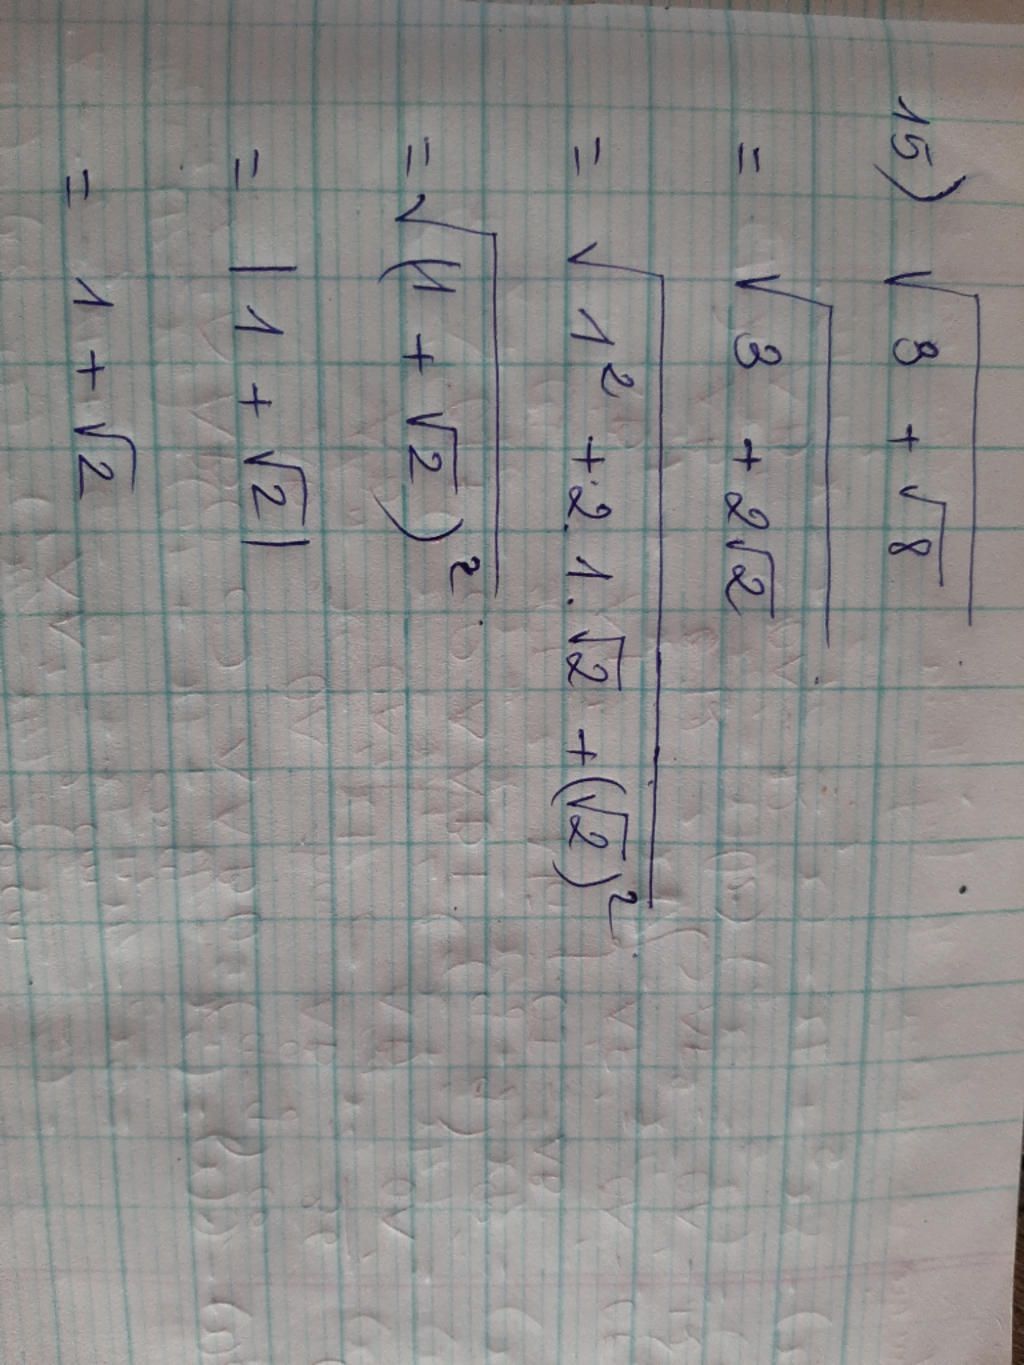 15) √(3 + √8)
= √(3 + 2√2)
= √(1² + 2.1.√2 + (√2)²)
= √((1 + √2)²)
= |1 + √2|
= 1 + √2